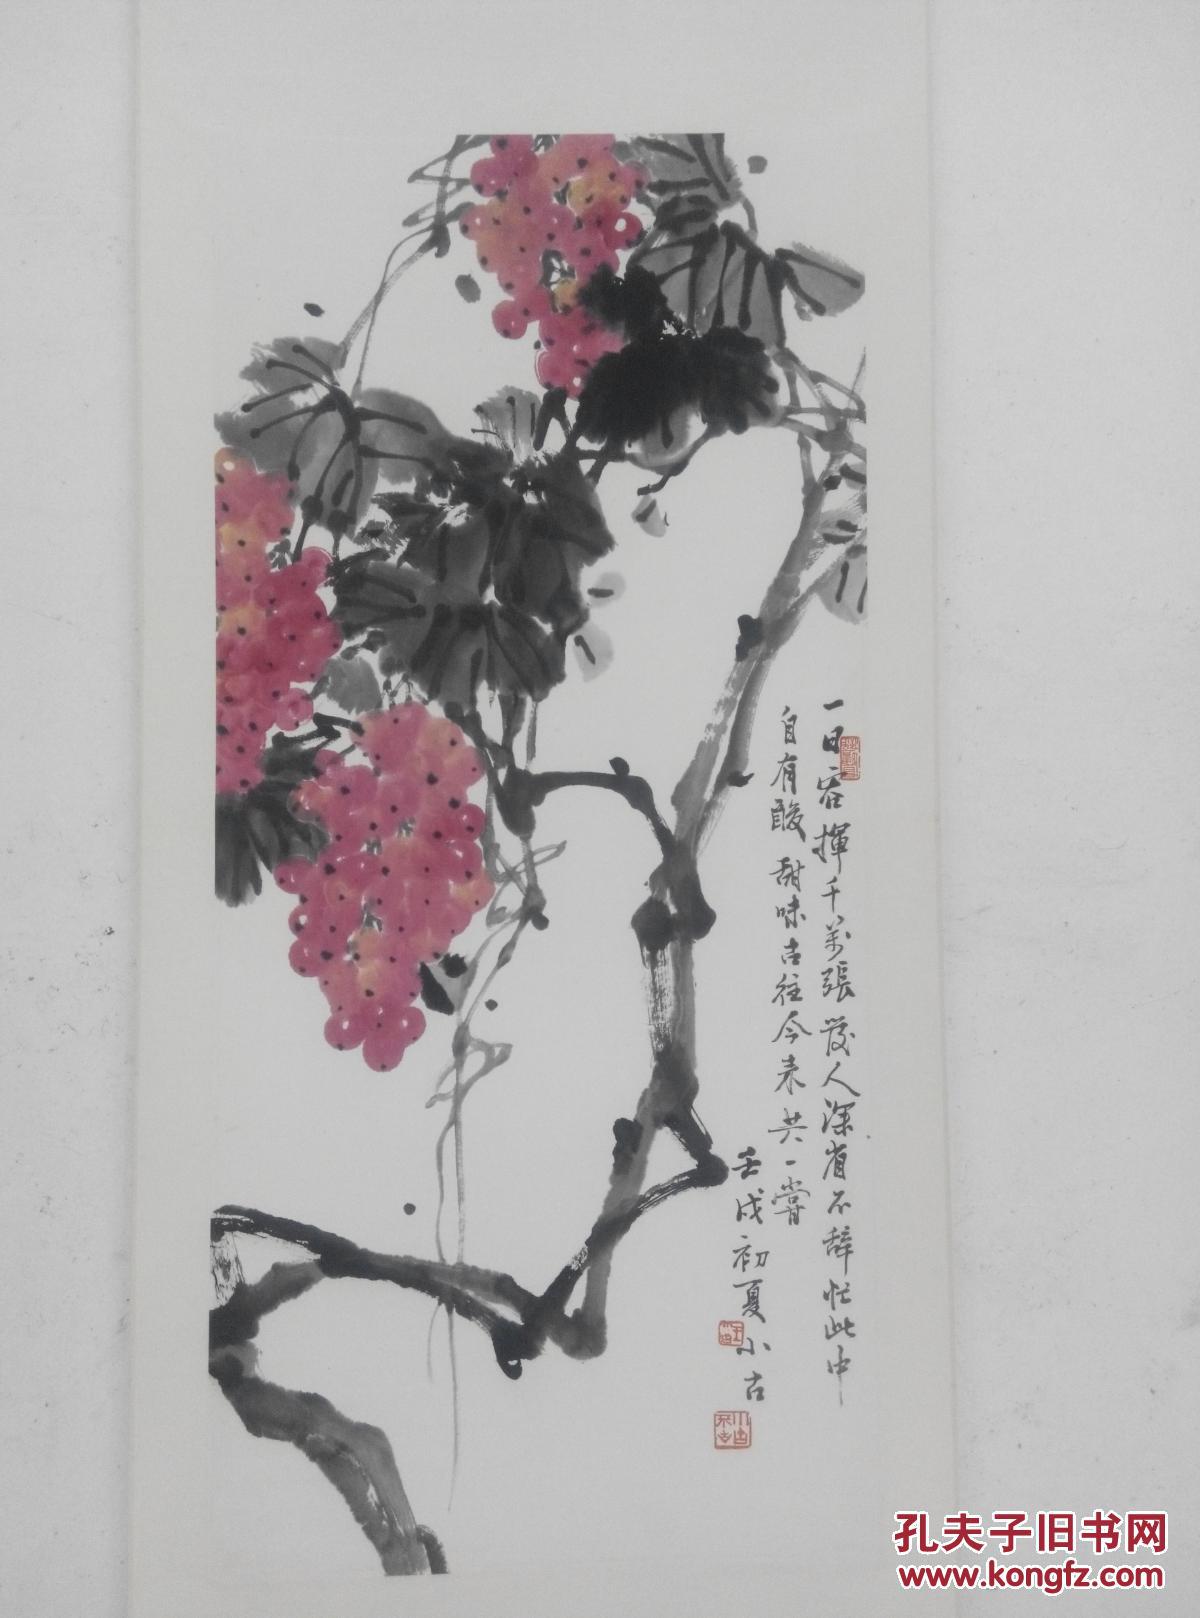 一日容揮千萬張發人深省不辞忙此中
自有酸甜味古往今来共一嘗
壬戌初夏小古
孔夫子旧书网
www.kongfz.com